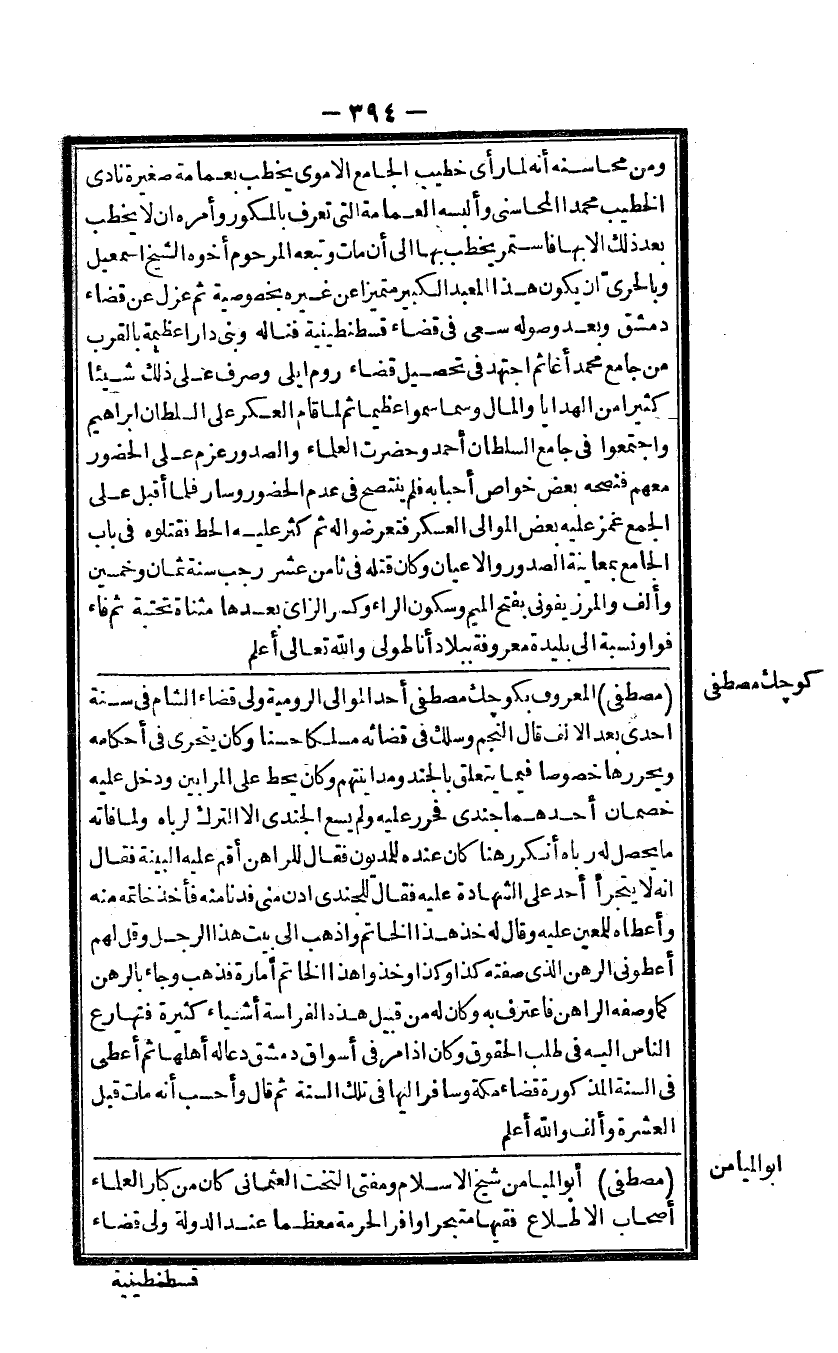 — ٣٩٤ —
ومن محاسنه أنه لما رأى خطيب الجامع الاموى يخطب بعمامة صغيرة نادى
الخطيب محمدا المحاسنى وألبسه العمامة التى تعرف بالمكور وأمره ان لا يخطب
بعد ذلك الا بها فاستمر يخطب بها الى أن مات وتبعه المرحوم أخوه الشيخ اسمعيل
وبالحرىّ ان يكون هذا المعبد الكبير متميزا عن غيره بخصوصية ثم عزل عن قضاء
دمشق وبعد وصوله سعى فى قضاء قسطنطينية فناله وبنى دارا عظيمة بالقرب
من جامع محمد أغا ثم اجتهد فى تحصيل قضاء روم ايلى وصرف على ذلك شيئا
كثيرا من الهدايا والمال وسما سموا عظيما ثم لما قام العسكر على السلطان ابراهيم
واجتمعوا فى جامع السلطان أحمد وحضرت العلماء والصدور عزم على الحضور
معهم فنصحه بعض خواص أحبابه فلم ينتصح فى عدم الحضور وسار فلما أقبل على
الجمع غمز عليه بعض الموالى العسكر فتعرضوا له ثم كثر عليه الحط فقتلوه فى باب
الجامع بمعاينة الصدور والاعيان وكان قتله فى ثامن عشر رجب سنة ثمان وخمسين
وألف والمرزيفونى بفتح الميم وسكون الراء وكسر الزاى بعدها مثناة تحتية ثم فاء
فواو نسبة الى بليدة معروفة ببلاد أناطولى والله تعالى أعلم
كوچك مصطفى
(مصطفى) المعروف بكوچك مصطفى أحد الموالى الرومية ولى قضاء الشام فى سنة
احدى بعد الالف قال النجم وسلك فى قضائه مسلكا حسنا وكان يتحرى فى أحكامه
ويحررها خصوصا فيما يتعلق بالجند ومداينتهم وكان يحط على المرابين ودخل عليه
خصمان أحدهما جندى فحرر عليه ولم يسع الجندى الا الترك لرباه ولما فاته
ما يحصل له رباه أنكر رهنا كان عنده للمديون فقال للراهن أقم عليه البينة فقال
انه لا يتجرأ أحد على الشهادة عليه فقال للجندى ادن منى فدنا منه فأخذ خاتمه منه
وأعطاه للمعين عليه وقال له خذ هذا الخاتم واذهب الى بيت هذا الرجل وقل لهم
أعطونى الرهن الذى صفته كذا وكذا وخذوا هذا الخاتم أمارة فذهب وجاء بالرهن
كما وصفه الراهن فاعترف به وكان له من قبيل هذه الفراسة أشياء كثيرة فتهارع
الناس اليه فى طلب الحقوق وكان اذا مر فى أسواق دمشق دعا له أهلها ثم أعطى
فى السنة المذكورة قضاء مكة وسافر اليها فى تلك السنة ثم قال وأحسب أنه مات قبل
العشرة وألف والله أعلم
ابو الميامن
(مصطفى) أبو الميامن شيخ الاسلام ومفتى التخت العثمانى كان من كبار العلماء
أصحاب الاطلاع فقيها متبحرا وافر الحرمة معظما عند الدولة ولى قضاء
قسطنطينية